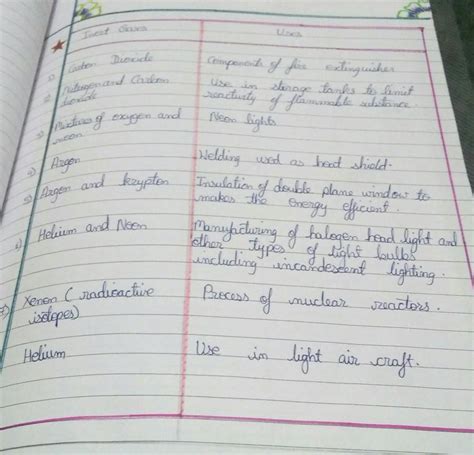 Inert Gases Uses
1) Carbon Dioxide Components of fire extinguisher
2) Nitrogen and Carbon Use in storage tanks to limit
dioxide reactivity of flammable substance.
3) Mixtures of oxygen and Neon lights
neon
4) Argon Welding used as head shield.
5) Argon and krypton Insulation of double plane window to
makes the energy efficient.
6) Helium and Neon Manufacturing of halogen head light and
other types of light bulbs
including incandescent lighting.
7) Xenon (radioactive Process of nuclear reactors.
isotopes)
Helium Use in light air craft.